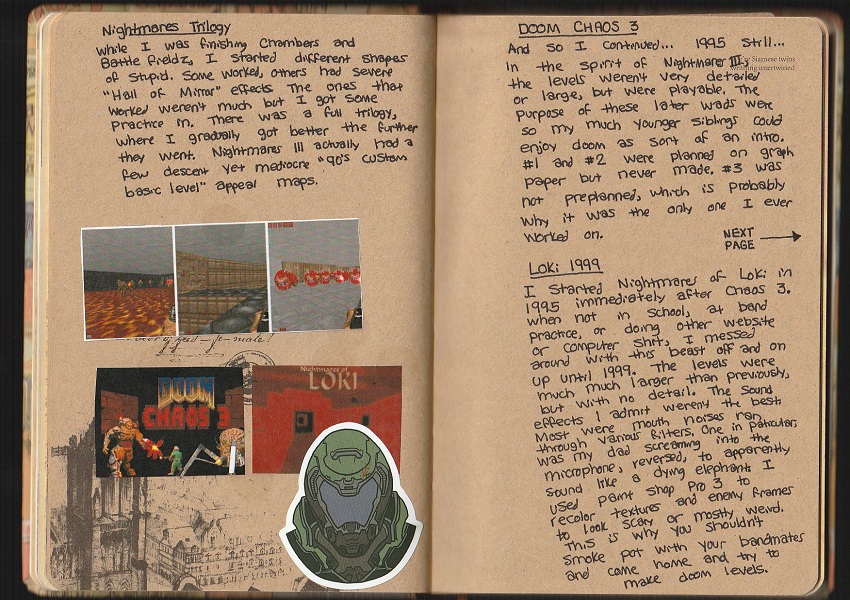 Nightmares Trilogy
While I was finishing Chambers and
Battle Fieldz, I started different shapes
of stupid. Some worked, others had severe
"Hall of Mirror" effects. The ones that
worked weren't much but I got some
practice in. There was a full trilogy,
where I gradually got better the further
they went. Nightmares III actually had a
few descent yet mediocre "90's custom
basic level" appeal maps.
DOOM
CHAOS 3
Nightmares of
LOKI
DOOM CHAOS 3
And so I continued... 1995 still...
In the spirit of Nightmares III,
the levels weren't very detailed
or large, but were playable. The
purpose of these later wads were
so my much younger siblings could
enjoy doom as sort of an intro.
#1 and #2 were planned on graph
paper but never made. #3 was
not preplanned, which is probably
why it was the only one I ever
worked on.
NEXT
PAGE
Siamese twins
intertwined
Loki 1999
I started Nightmares of Loki in
1995 immediately after Chaos 3.
when not in school, at band
practice, or doing other website
or computer shit, I messed
around with this beast off and on
up until 1999. The levels were
much much larger than previously,
but with no detail. The sound
effects I admit weren't the best.
Most were mouth noises ran
through various filters. One in paticular,
was my dad screaming into the
microphone, reversed, to apparently
sound like a dying elephant. I
used Paint Shop Pro 3 to
recolor textures and enemy frames
to look scary or mostly weird.
This is why you shouldn't
smoke pot with your bandmates
and come home and try to
make doom levels.